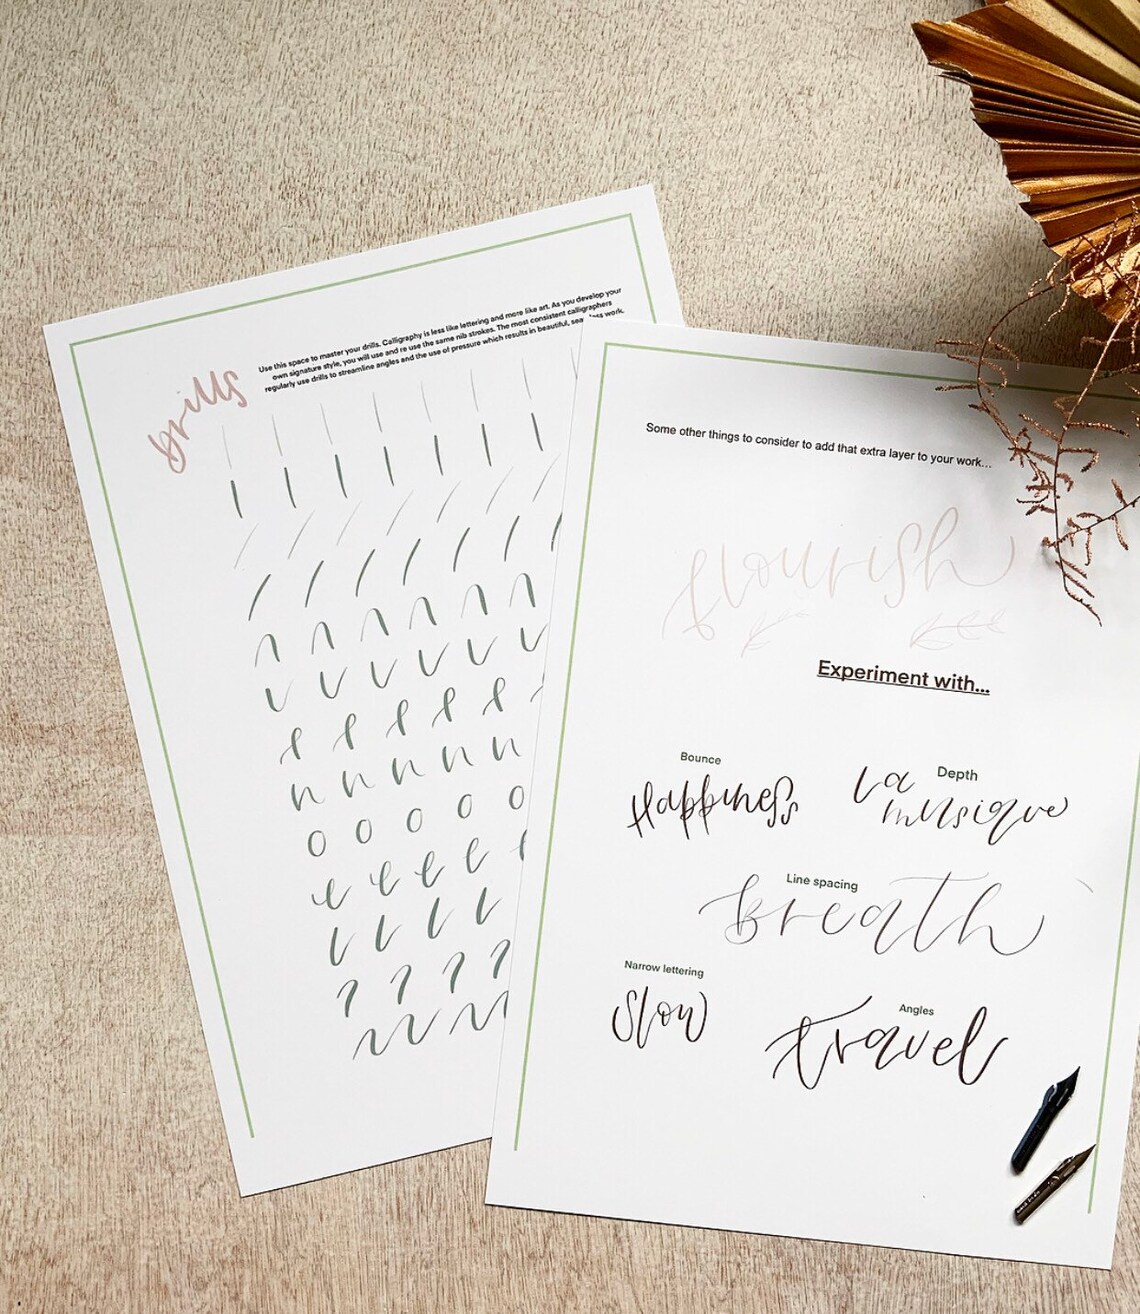 Drills
Use this space to master your drills. Calligraphy is less like lettering and more like art. As you develop your
own signature style, you will use and re use the same nib strokes. The most consistent calligraphers
regularly use drills to streamline angles and the use of pressure which results in beautiful, work.
Some other things to consider to add that extra layer to your work...
flourish
Experiment with...
Bounce
Happiness
Depth
La
musique
Line spacing
Breath
Narrow lettering
Slow
Angles
travel